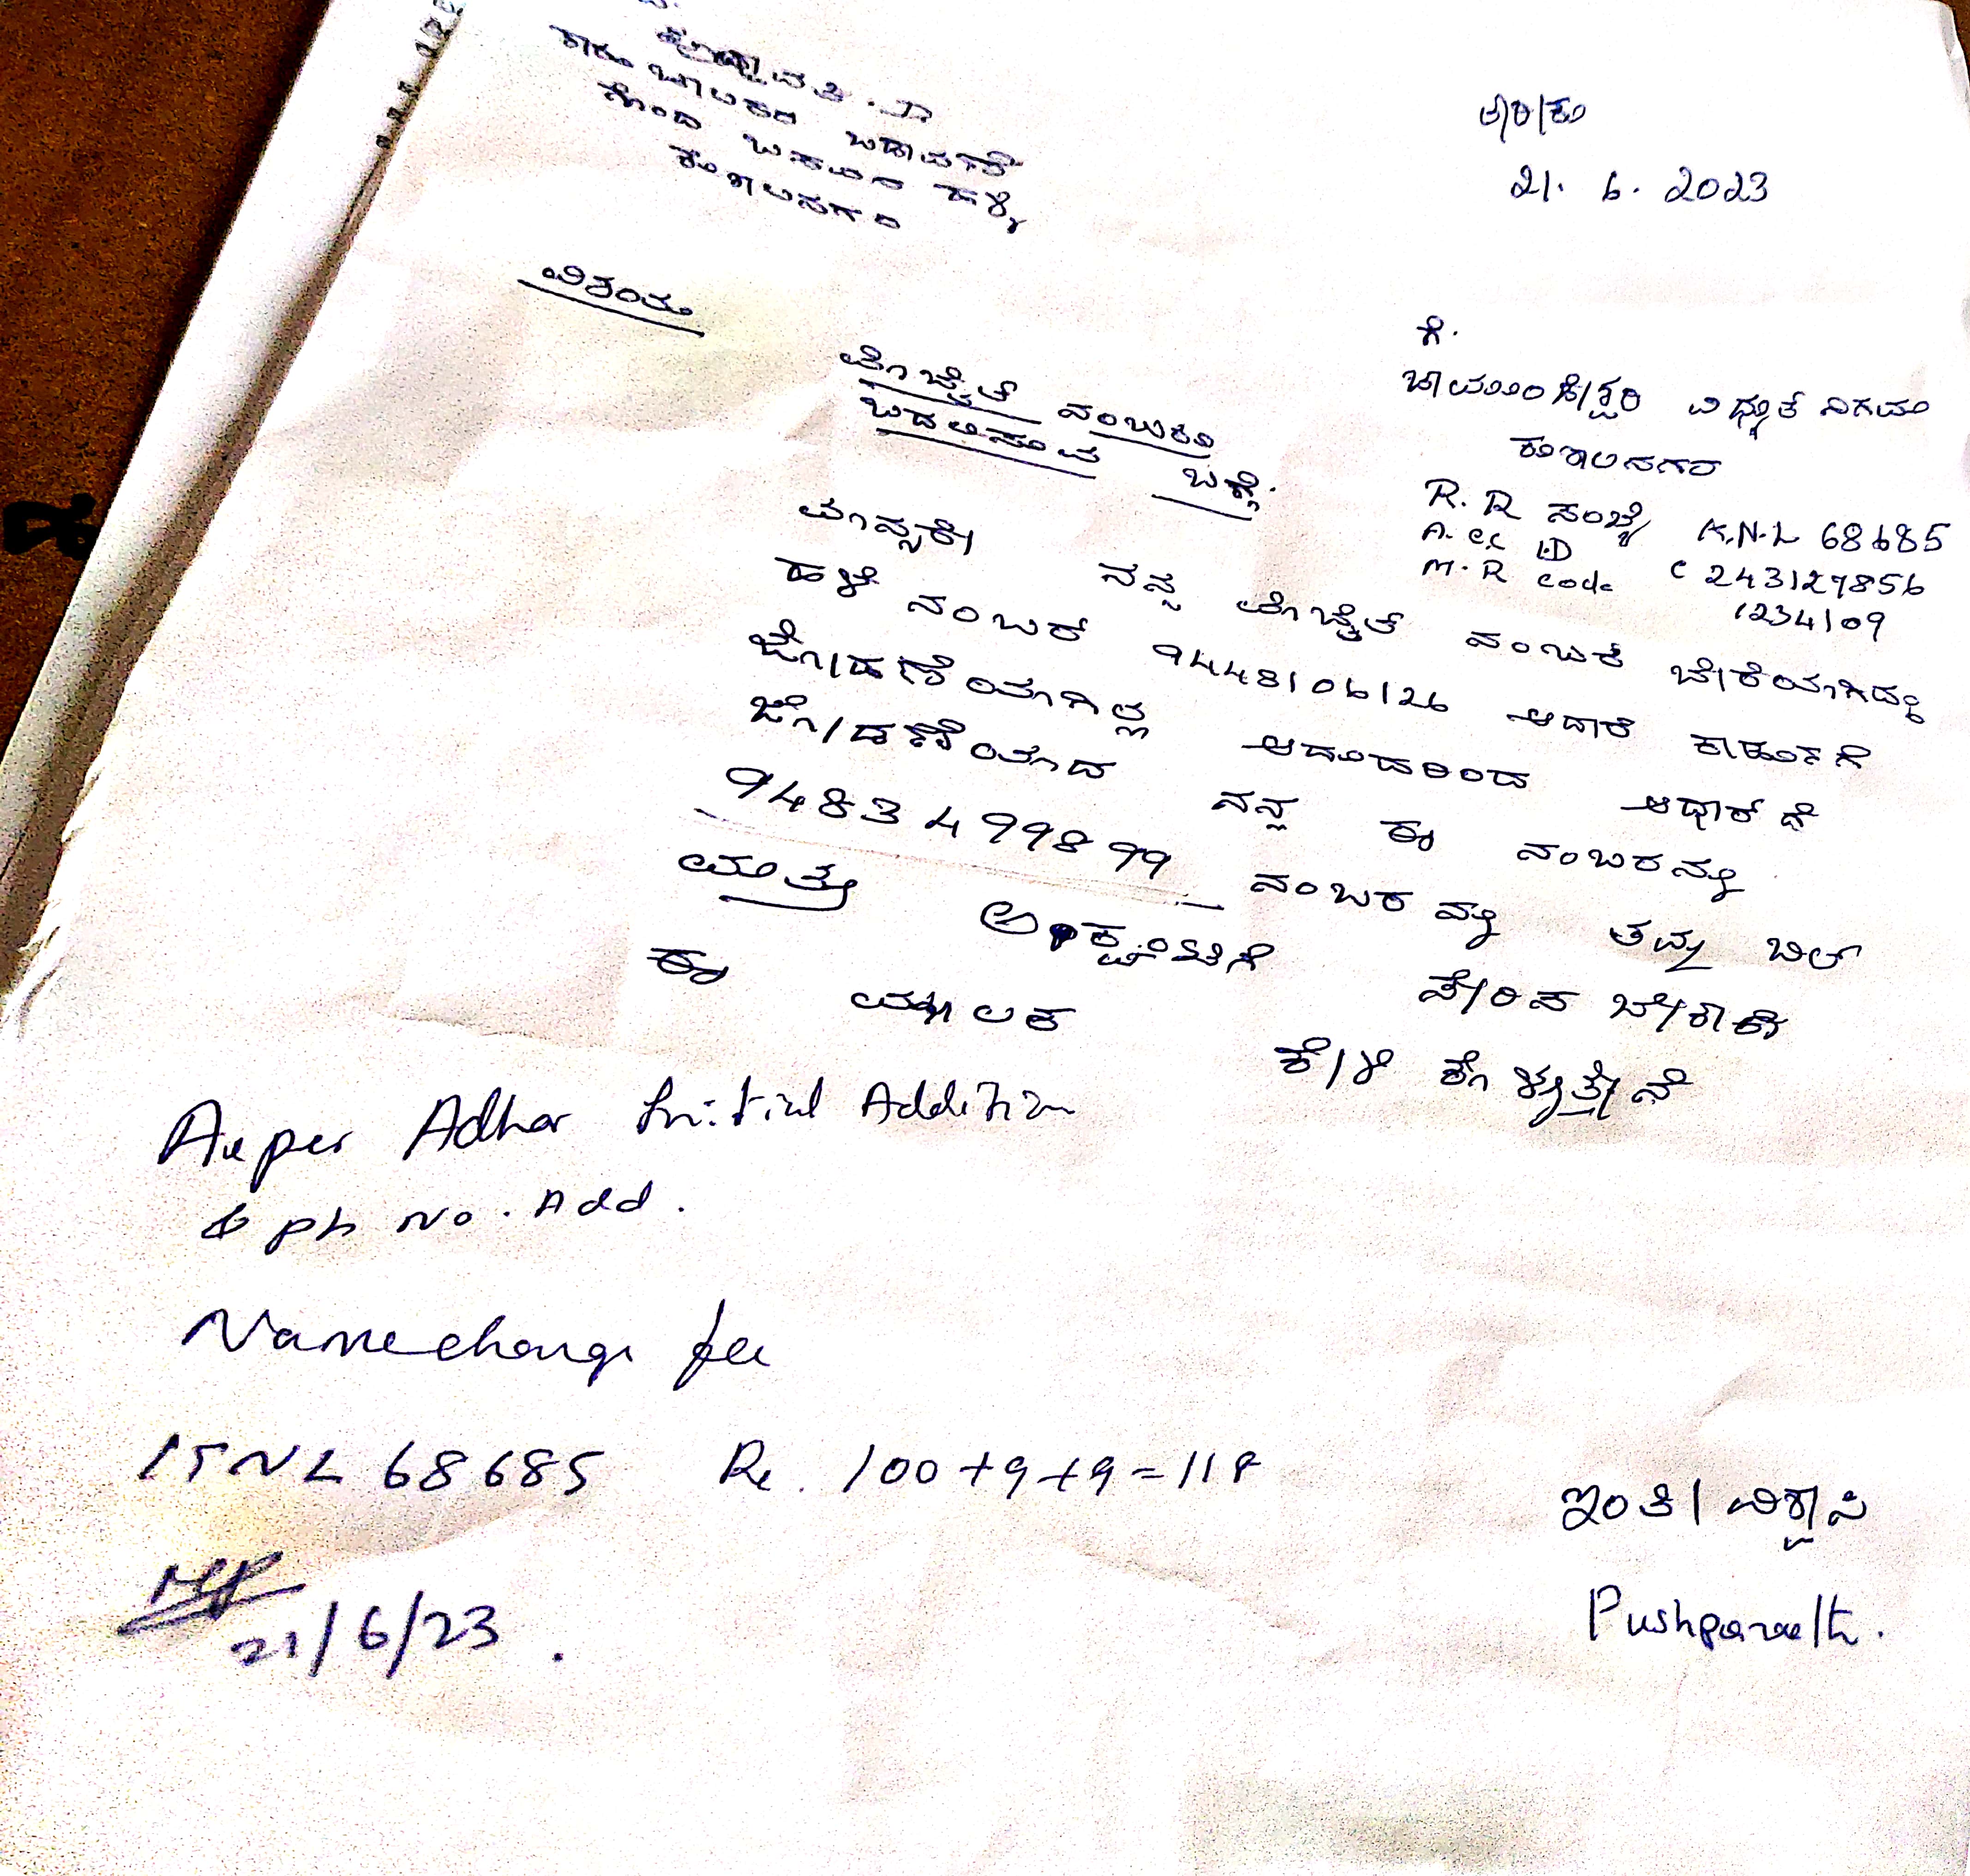 ಪುಷ್ಪಾವತಿ
ಬಡಾವಣೆ
ಗೊಂದಿ ಬಸವನ ಹಳ್ಳಿ
ಕುಶಾಲನಗರ
21. 6. 2023
ವಿಷಯ
ಮೊಬೈಲ್ ನಂಬರು
ಬದಲಿಸುವ ಬಗ್ಗೆ.
ಗೆ.
ಚಾಮುಂಡೇಶ್ವರಿ ವಿಧ್ಯುತ್ ನಿಗಮ
ಕುಶಾಲನಗರ
R. R ಸಂಖ್ಯೆ K.N.L 68685
A. cc ID C 243127856
M. R code 1234109
ಮಾನ್ಯರೇ
ನನ್ನ ಮೊಬೈಲ್ ನಂಬರ್ ಬೇರೆಯಾಗಿದ್ದು
ಹಳೆ ನಂಬರ್ 9448106126 ಆದಾರ್ ಕಾರ್ಡಿಗೆ
ಜೋಡಣೆಯಾಗಿಲ್ಲ ಆದುದರಿಂದ ಆಧಾರ್ ಗೆ
ಜೋಡಣೆಯಾದ ನನ್ನ ಈ ನಂಬರನ್ನು
9483499899 ನಂಬರನ್ನು ತಮ್ಮ ಬಿಲ್
ಮತ್ತು ಸೇರಿಸ ಬೇಕಾಗಿ
ಈ ಮೂಲಕ ಕೇಳಿ ಕೊಳ್ಳುತ್ತೇನೆ
As per Adhar Initial Addition
& ph No. Add.
Name change fee
KNL 68685 Rs. 100+9+9=118
21/6/23.
ಇಂತಿ ವಿಶ್ವಾಸಿ
Pushpavathi.